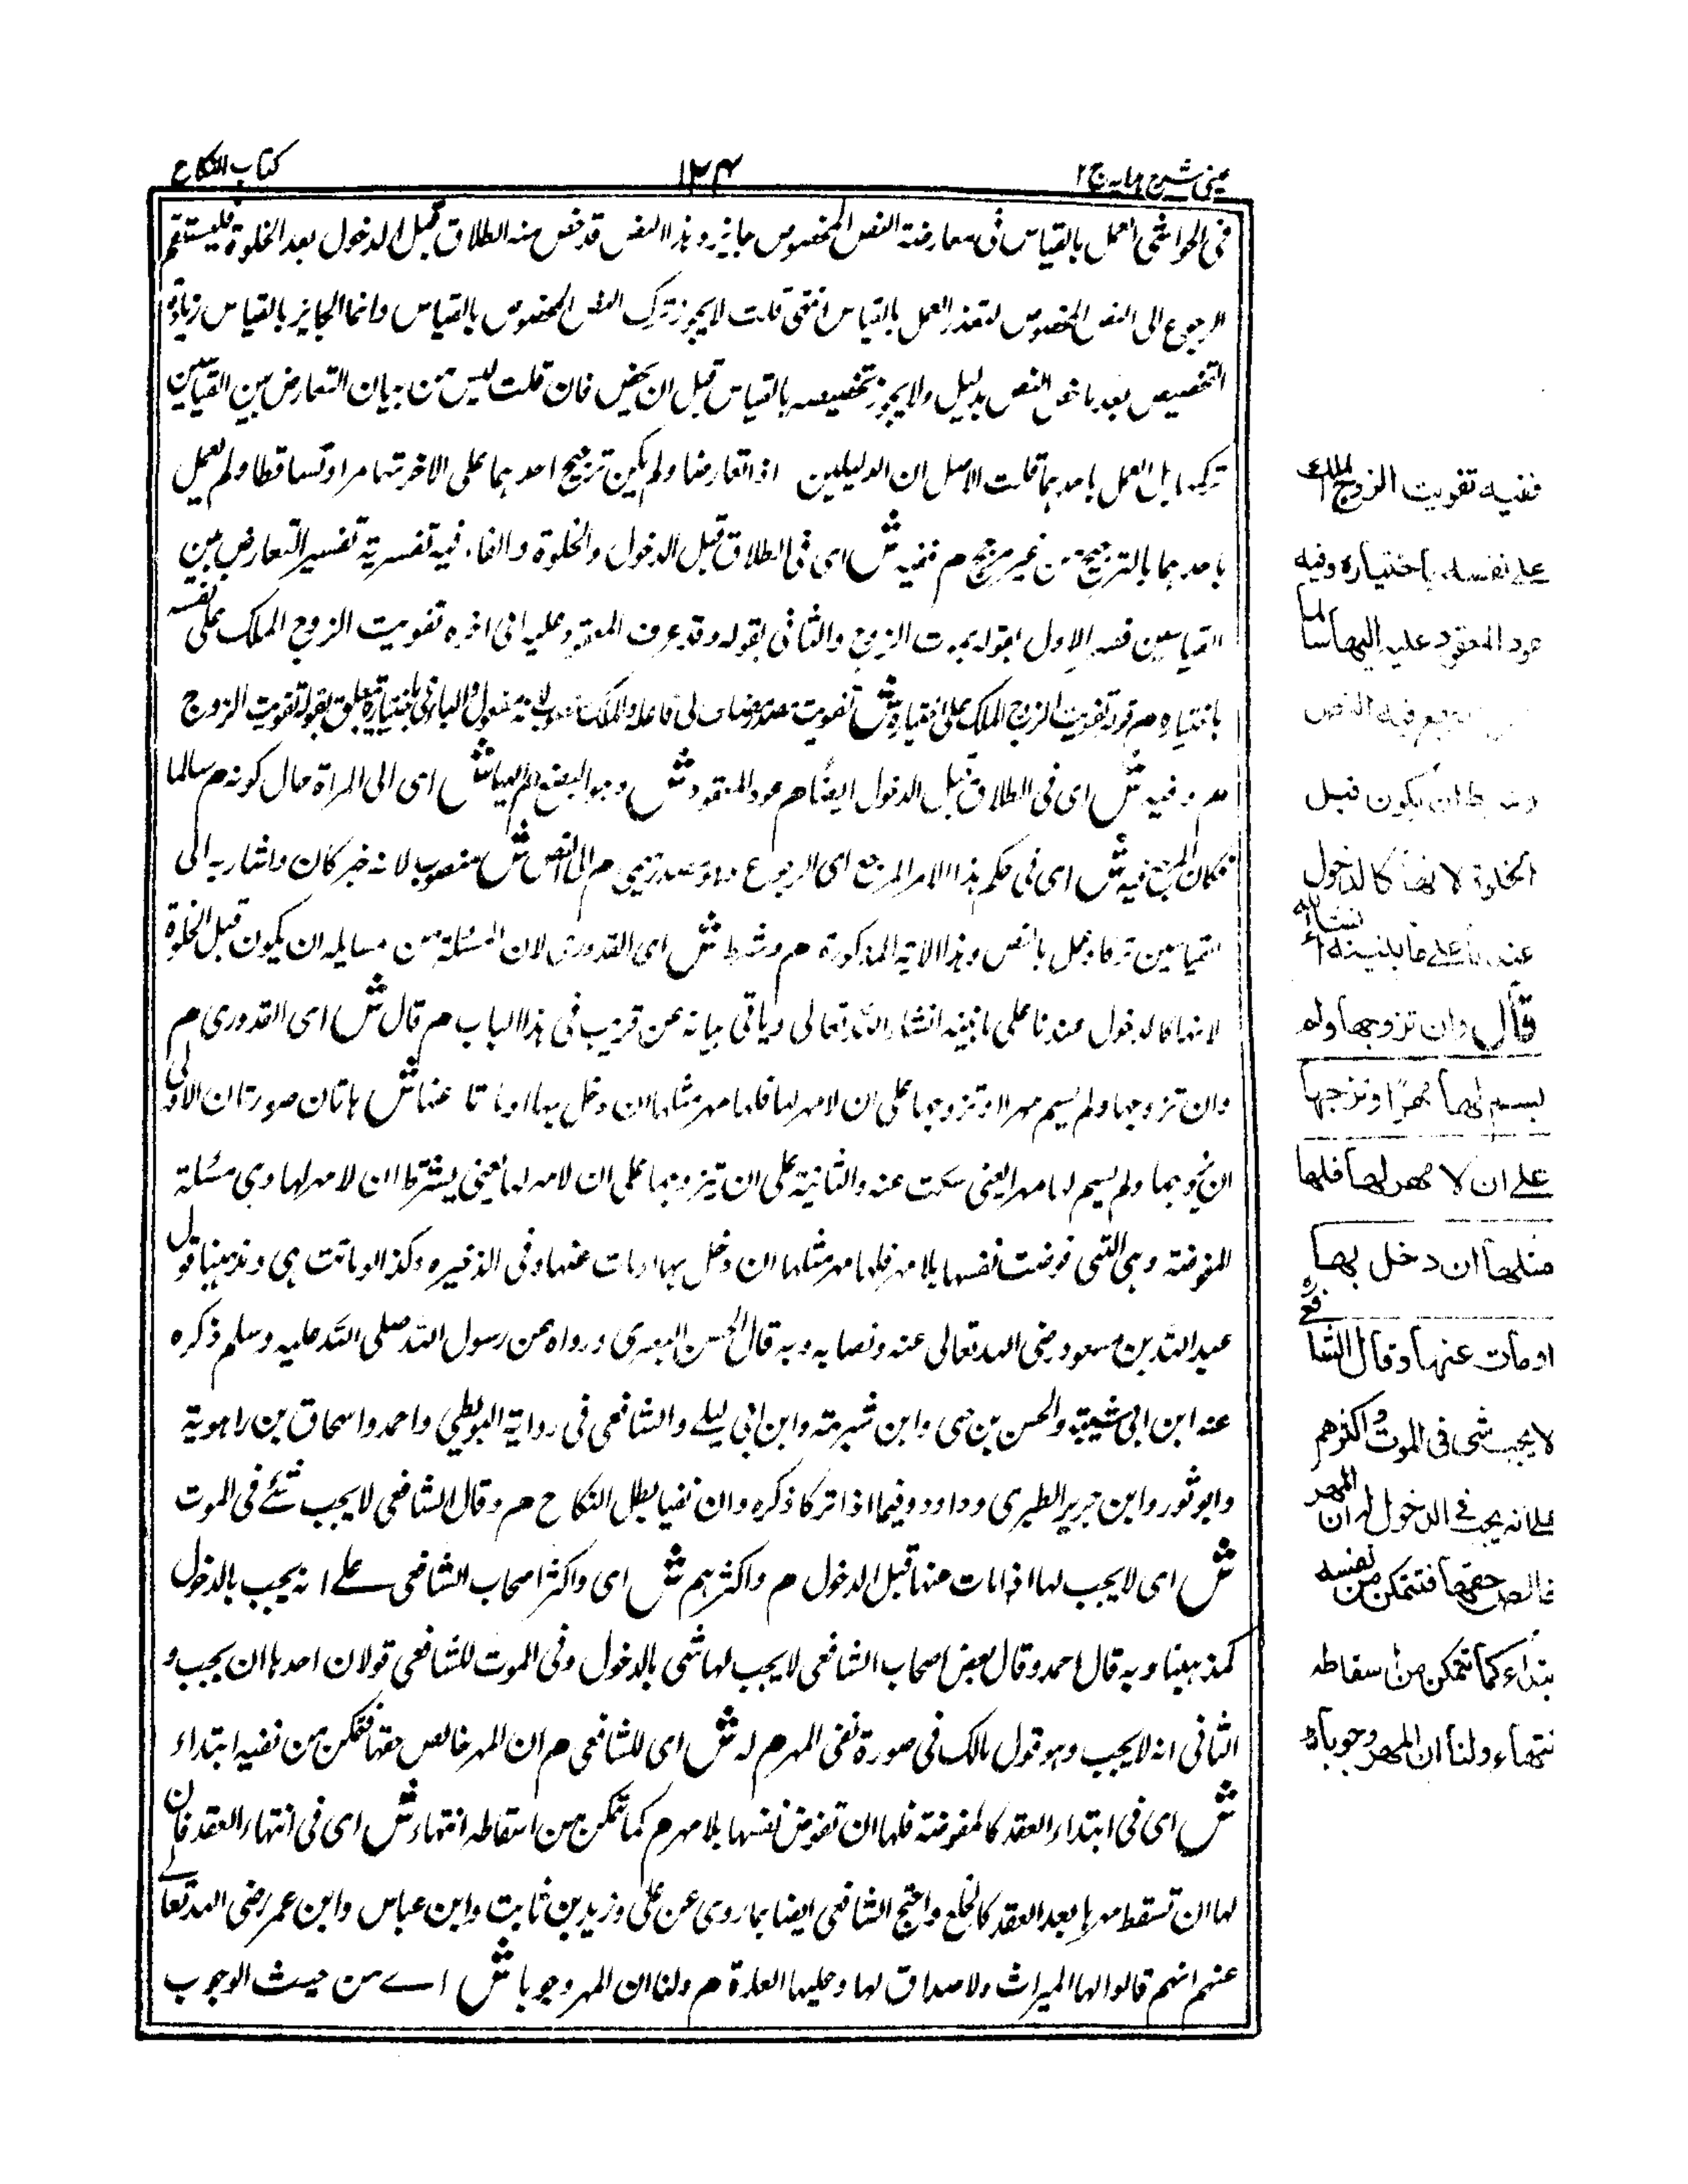 عینی شرح هدایه ج ٢
١٢٤
كتاب النكاح
فى الحواشى العمل بالقياس فى معارضة النص المخصوص جايز وهذا النص قد خص منه الطلاق قبل الدخول بعد الخلوة فليستقم
الرجوع الى النص المخصوص لتعذر العمل بالقياس انتهى قلت لا يجوز ترك النص المخصوص بالقياس وانما الجايز بالقياس زيادة
التخصيص بعد ما خص النص بدليل ولا يجوز تخصيصه بالقياس قبل ان يخص فان قلت ليس من بيان التعارض بين القياسين
تركهما بل العمل باحدهما قلت الاصل ان الدليلين اذا تعارضا ولم يكن ترجيح احدهما على الاخر تهاترا وتساقطا ولم يعمل
باحدهما بالترجيح من غير مرجح م ففيه ش اى فى الطلاق قبل الدخول والخلوة والفاء فيه تفسرية تفسير التعارض بين
القياسين فسر الاول بقوله تفويت الزوج والثانى بقوله وفيه عود المعقود عليه الى اخره تفويت الزوج الملك على نفسه
باختياره ش تفويت مصدر مضاف الى فاعله والملك منصوب لانه مفعول والباء فى باختياره يتعلق بقوله تفويت الزوج
م وفيه ش اى فى الطلاق قبل الدخول ايضا م عود المعقود ش وهو البضع م اليها ش اى الى المراة حال كونه م سالما
فكان المرجع فيه ش اى فى حكم هذا الامر المرجع اى الرجوع وهو مصدر ميمى م الى النص ش منصوب لانه خبر كان واشار به الى
القياسين تركا وعمل بالنص وهذا الاية المذكورة م وشرط ش اى القدورى لان المسئلة من مسايله ان يكون قبل الخلوة
لانها كالدخول عندنا على ما نبينه انشاء الله تعالى وياتى بيانه عن قريب فى هذا الباب م قال ش اى القدورى م
وان تزوجها ولم يسم مهرا او تزوجها على ان لا مهر لها فلها مهر مثلها ان دخل بها او مات عنها ش هاتان صورتان الاولى
ان تزوجها ولم يسم لها مهرا يعنى سكت عنه والثانية على ان تزوجها على ان لا مهر لها يعنى يشترط ان لا مهر لها وهى مسئلة
المفوضة وهى التى فوضت نفسها بلا مهر فلها مهر مثلها ان دخل بها او مات عنها وفى الذخيره وكذا لو ماتت هى ومذهبنا قول
عبد الله بن مسعود رضى الله تعالى عنه ونصا به وبه قال الحسن البصرى ورواه عن رسول الله صلى الله عليه وسلم ذكره
عنه ابن ابى شيبة والحسن بن حى وابن شبرمة وابن ابى ليلے والشافعى فى رواية البويطي واحمد واسحاق بن راهوية
وابو ثور وابن جرير الطبرى وداود وفيما اذا تركا ذكره وان نفيا بطل النكاح م وقال الشافعى لا يجب شئے فى الموت
ش اى لا يجب لها اذا مات عنها قبل الدخول م واكثرهم ش اى واكثر اصحاب الشافعى علے انه يجب بالدخول
كمذهبنا وبه قال احمد وقال بعض اصحاب الشافعى لا يجب لها شى بالدخول وفى الموت للشافعى قولان احدها ان يجب و
الثانى انه لا يجب وهو قول مالك فى صورة نفى المهر م له ش اى للشافعى م ان المهر خالص حقها فتمكن من نفيه ابتداء
ش اى فى ابتداء العقد كالمفوضة فلها ان تفوض نفسها بلا مهر م كما تتمكن من اسقاطه انتهاء ش اى فى انتهاء العقد فان
لها ان تسقط مهرها بعد العقد كالخلع واحتج الشافعى ايضا بما روى عن على وزيد بن ثابت وابن عباس وابن عمر رضى الله تعالے
عنهم انهم قالوا لها الميراث ولا صداق لها وعليها العدة م ولنا ان المهر وجوبا ش اے من حيث الوجوب
ففيه تفويت الزوج الملك
على نفسه باختياره وفيه
عود المعقود عليه اليها سالما
فيه النص
وشرط ان يكون قبل
الخلوة لانها كالدخول
عندنا على ما نبينه ان شاء الله
قال وان تزوجها ولم
يسم لها مهرًا او تزوجها
على ان لا مهر لها فلها
مثلها ان دخل بها
او مات عنها وقال الشافعے
لا يجب شى فى الموت واكثرهم
على انه يجب فى الدخول له ان المهر
خالص حقها فتتمكن من نفيه
بتداء كما تتمكن من اسقاطه
نتهاء ولنا ان المهر وجوبا